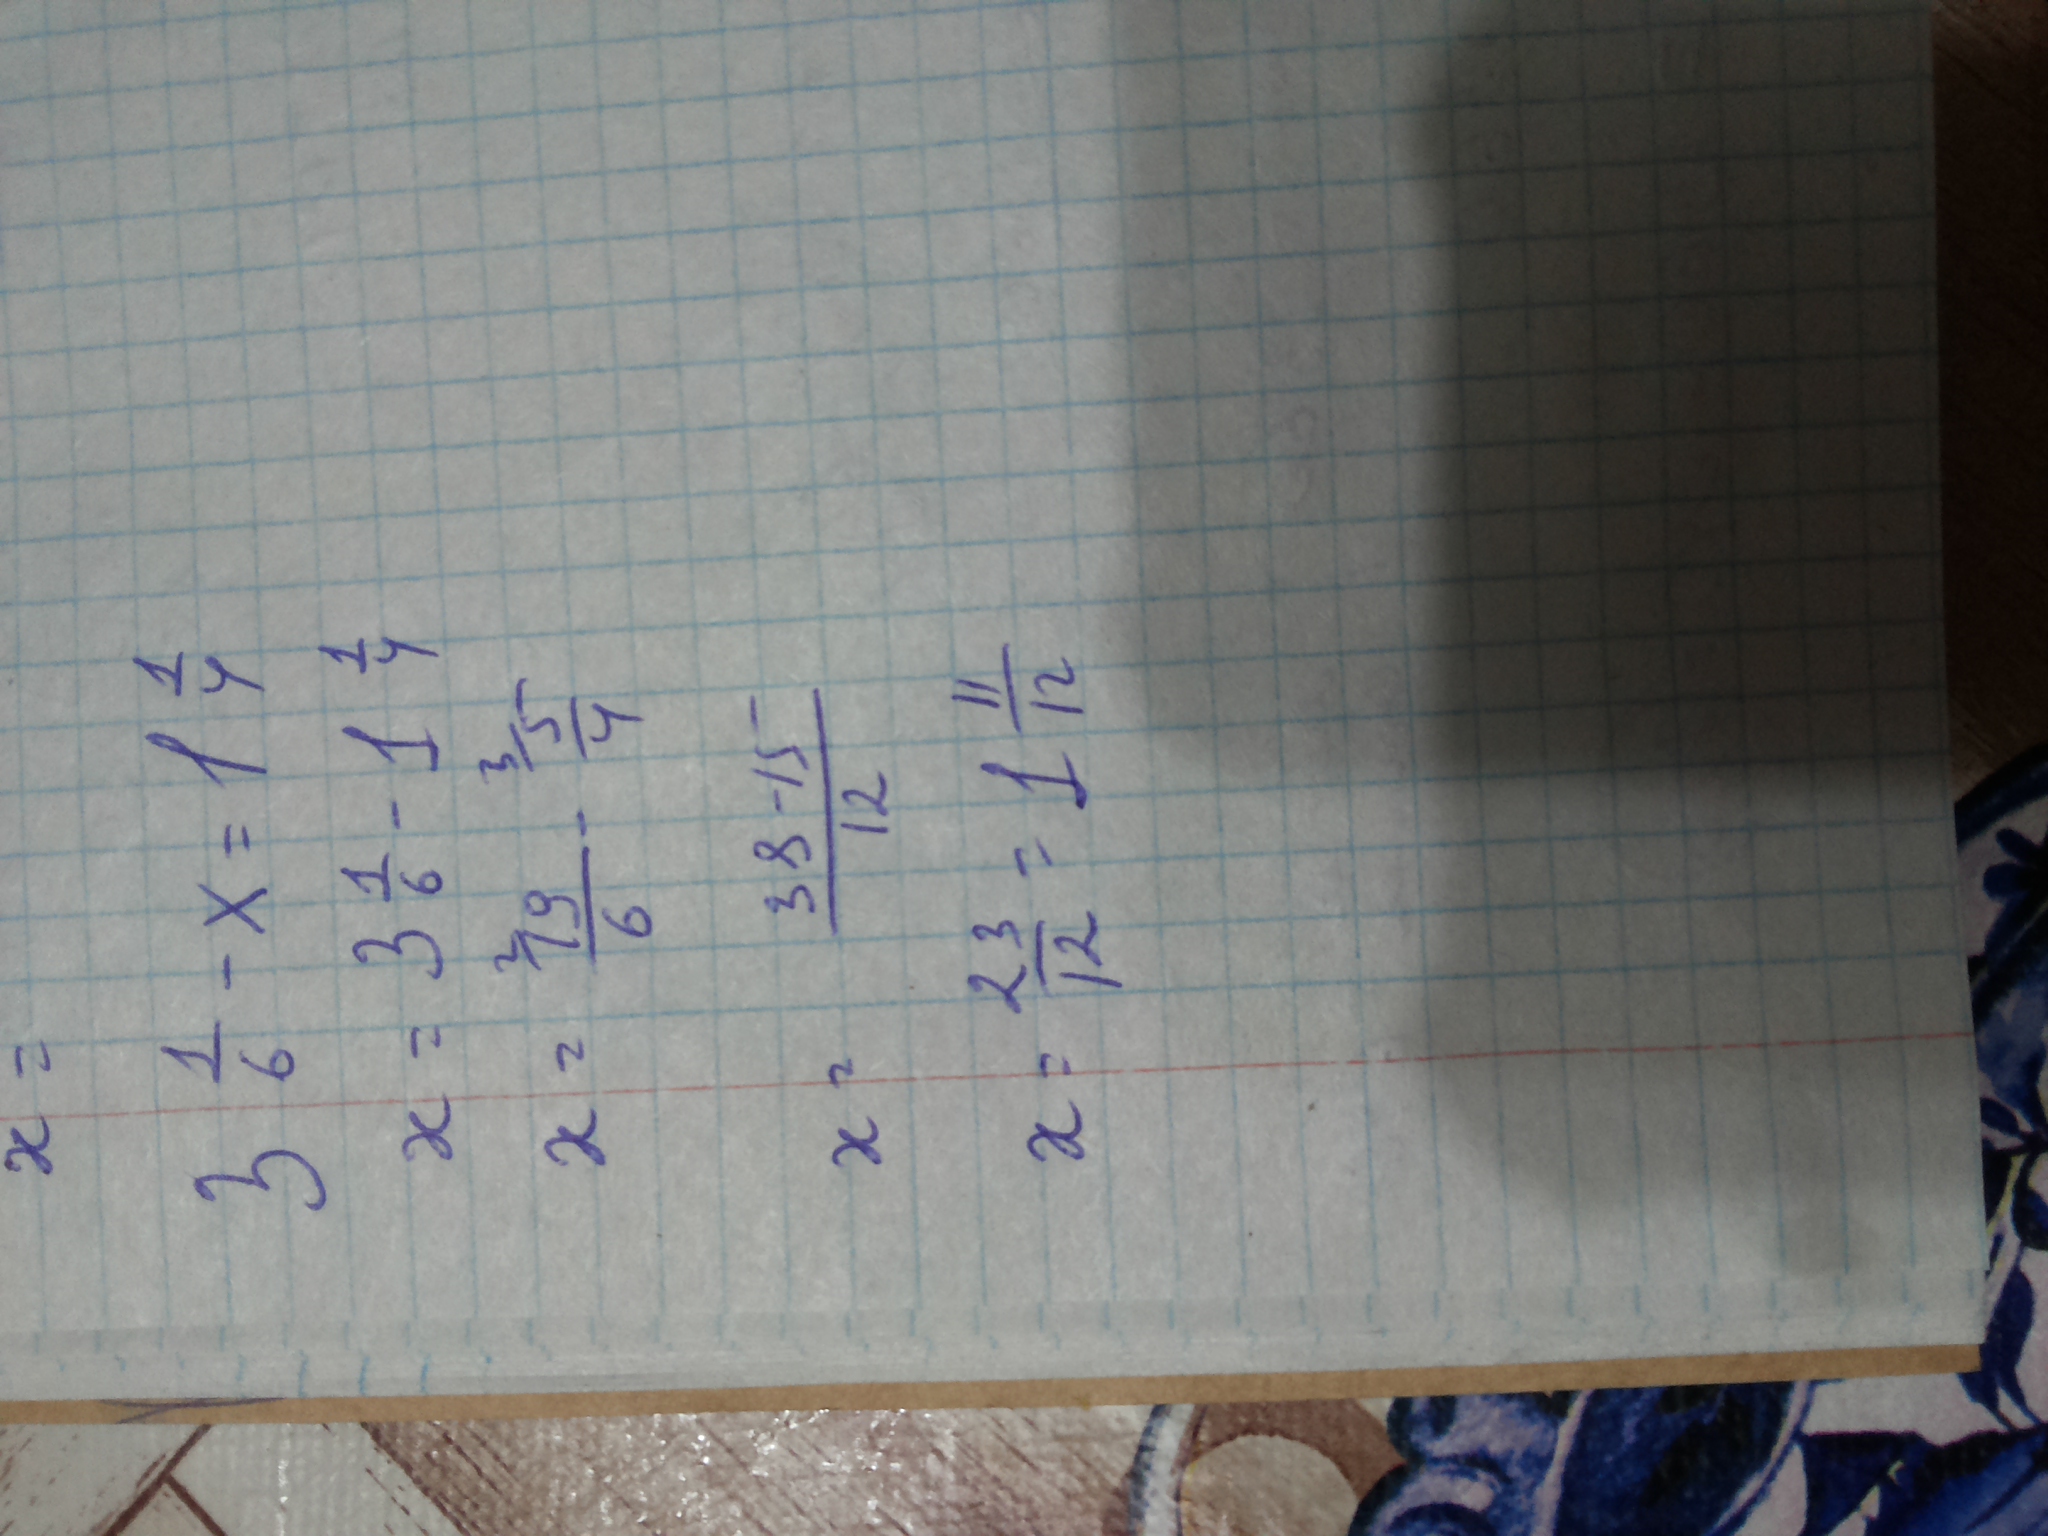 x =
3 1/6 - x = 1 1/4
x = 3 1/6 - 1 1/4
x = 19/6 - 3/ 5/4
x = 38-15/12
x = 23/12 = 1 11/12